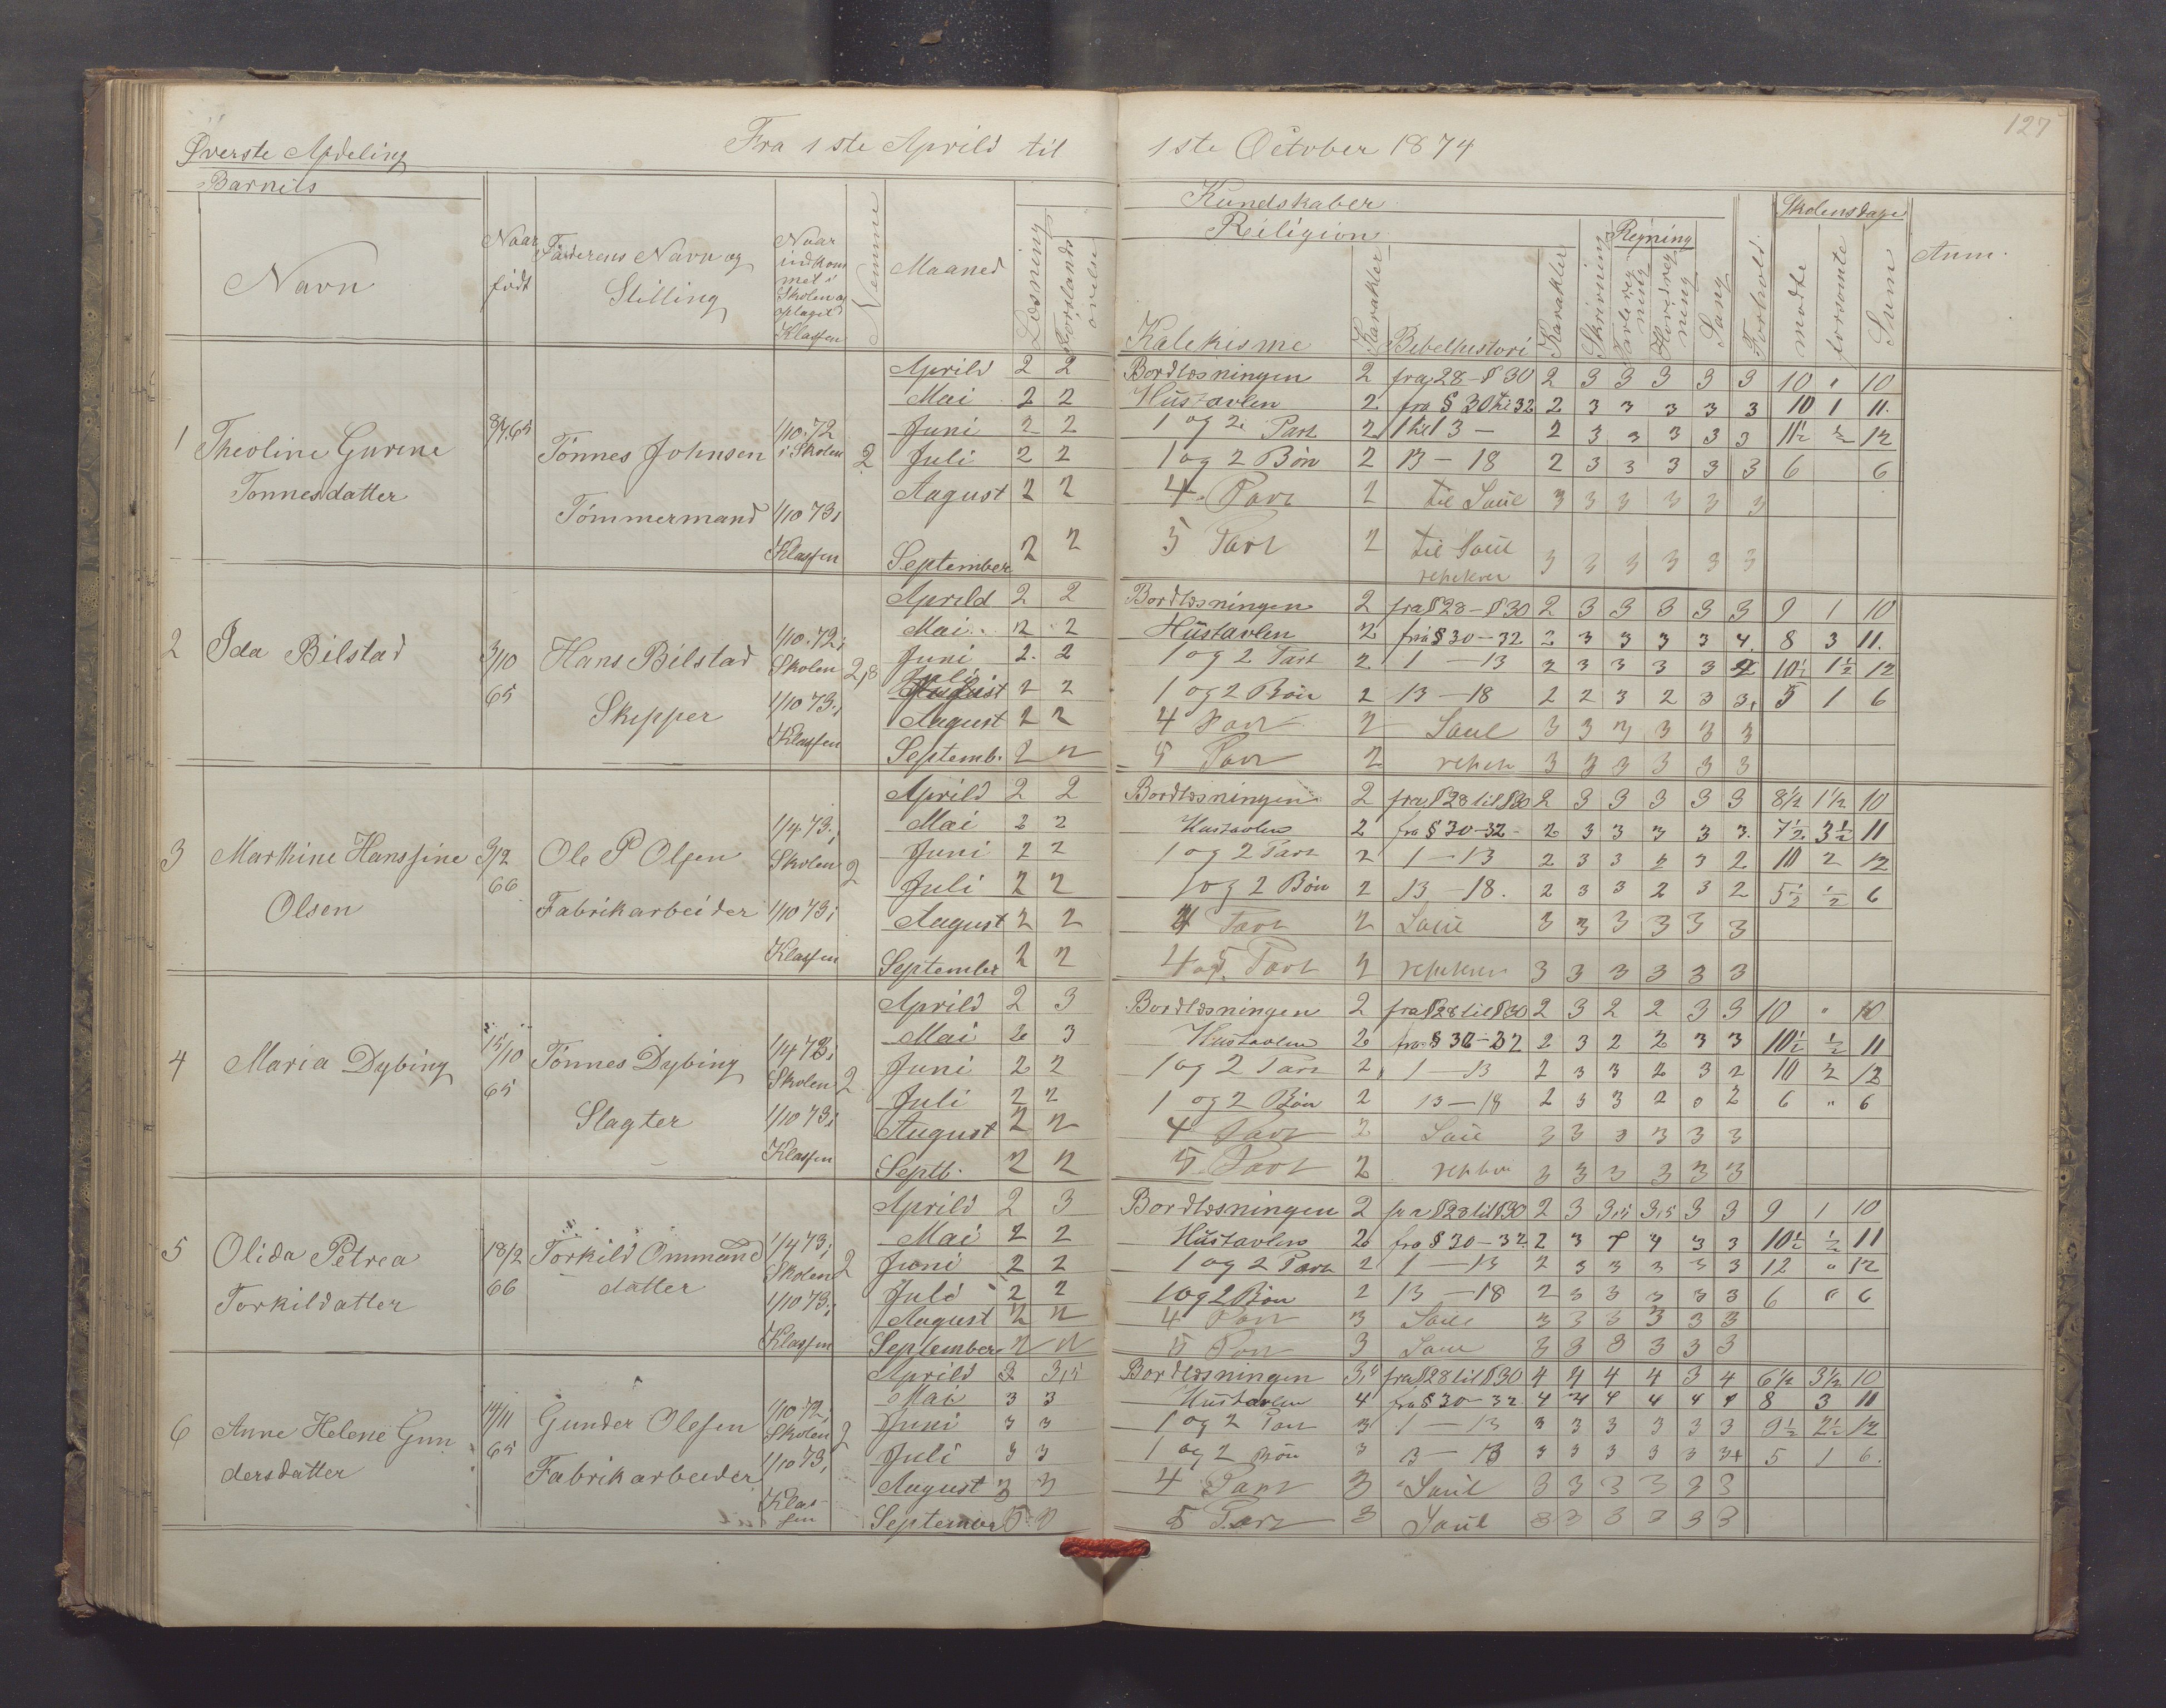 127
Øverste Afdeling Fra 1ste Aprild til 1ste October 1874
Barnets Kundskaber Skolensdage
Religion Regning
Navn Naar født Faderens Navn og Stilling Naar indkommet i Skolen og optaget i Klassen Nemme Maaned Læsning Forstands øvelse Katekisme Karakter Bibelhistori Karakter Skrivning Tavlereg ning Hovedreg ning Sang Forhold mødte forsømte Sum Anm.
Aprild 2 2 Bordlæsningen 2 fra 28 - § 30 2 3 3 3 3 3 10 " 10
Mai 2 2 Hustavlen 2 fra § 30 til 32 2 3 3 3 3 3 10 1 11.
1 Theoline Gurine Tønnesdatter Tönnes Johnsen Tömmermand 1/10.72 i Skolen 1/10 73 i Klassen 2
Juni 2 2 1 og 2. Part 2 1 til 13 - 2 3 3 3 3 3 11½ ½ 12
Juli 2 2 1 og 2 Bön 2 13 - 18 2 3 3 3 3 3 6 6
August 2 2 4. Part 2 til Saul 3 3 3 3 3 3
September 2 2 5 Part 2 til Saul 3 3 3 3 3 3
Aprild 2 2 Bordlæsningen 2 fra § 28 - § 30 2 3 3 3 3 3 9 1 10
Mai 2 2 Hustavlen 2 fra § 30 - 32 2 3 3 3 3 4. 8 3 11.
2 Ida Bilstad 3/10 65 Hans Bilstad Skipper 1/10.72 i Skolen 1/10 73 i Klassen 2,8
Juni 2 2 1 og 2 Part 2 1 - 13 2 3 3 3 3 10½ 1½ 12
Juli 2 2 1 og 2 Bön 2 13 - 18 2 2 3 2 3 3 5 1 6
August 2 2 4 Part 2 Saul 3 3 3 3 3 3
Septemb. 2 2 5 Part 2 3 3 3 3 3 3
Aprild 2 2 Bordlæsningen 2 fra § 28 til § 30 2 3 3 3 3 3 8½ 1½ 10
Mai 2 2 Hustavlen 2 fra § 30 - 32 - 2 3 3 3 3 3. 7½ 3½ 11
3 Marthine Hansine Olsen 3/2 66 Ole P Olsen Fabrikarbeider 1/4 73 i Skolen 1/10 73 i Klassen 2
Juni 2 2 1 og 2 Part 2 1 - 13 2 3 3 2 3 2 10 2 12
Juli 2 2 1 og 2 Bön 2 13 - 18. 2 3 3 2 3 2 5½ ½ 6
August 2 2 4 Part 2 Saul 3 3 3 3 3 3
September 2 2 4 og 5. Part 2 3 3 3 3 3 3
Aprild 2 3 Bordlæsningen 2 fra § 28 til § 30 2 3 2 2 3 3 10 " 10
Mai 2 3 Hustavlen 2 fra § 30 - 32 2 3 2 2 3 3 10½ ½ 11
4 Maria Dybing 15/10 65 Tönnes Dybing Slagter 1/4 73 i Skolen 1/10 73 i Klassen 2
Juni 2 2 1 og 2 Part 2 1 - 13 2 3 3 2 3 2 10 2 12
Juli 2 2 1 og 2 Bön 2 13 - 18 2 3 3 2 3 2 6 " 6
August 2 2 4 Part 2 Saul 3 3 3 3 3 3
Septb. 2 2 5 Part 2 3 3 3 3 3 3
Aprild 2 3 Bordlæsningen 2 fra § 28 til § 30 2 3 3,5 3,5 3 3 9 1 10
Mai 2 2 Hustavlen 2 fra § 30 - 32. 2 3 3 3 10½ ½ 11
5 Olida Petrea Torkildatter 18/2 66 Torkild Ommund datter 1/4 73 i Skolen 1/10 73 i Klassen 2
Juni 2 2 1 og 2 Part 2 1 - 13 2 3 3 3 3 3 12 " 12
Juli 2 2 1 og 2 Bön 2 13 - 18 2 3 3 3 3 3 6 " 6
August 2 2 4 Part 3 Saul 3 3 3 3 3 3
September 2 2 5 Part 3 Saul 3 3 3 3 3 3
Aprild 3 3,5 Bordlæsningen 3,5 fra § 28 til § 30 4 4 4 4 3 4 6½ 3½ 10
Mai 3 3 Hustavlen 4 fra § 30 - 32. 4 4 4 4 4 4 8 3 11
6 Anne Helene Gun dersdatter 14/11 65 Gunder Olesen Fabrikarbeider 1/10 72 i Skolen 1/10 73 i Klas- sen 2
Juni 3 3 1 og 2 Part 3 1 - 13 3 3 3 3 3 3 9½ 2½ 12
Juli 3 3 1 og 2 Bön 3 13 - 18 3 3 3 3 3 5 1 6.
August 3 3 4 Part 3 Saul 3 3 3 3 3 3
September 5 Part 3 Saul 3 3 3 3 3 3